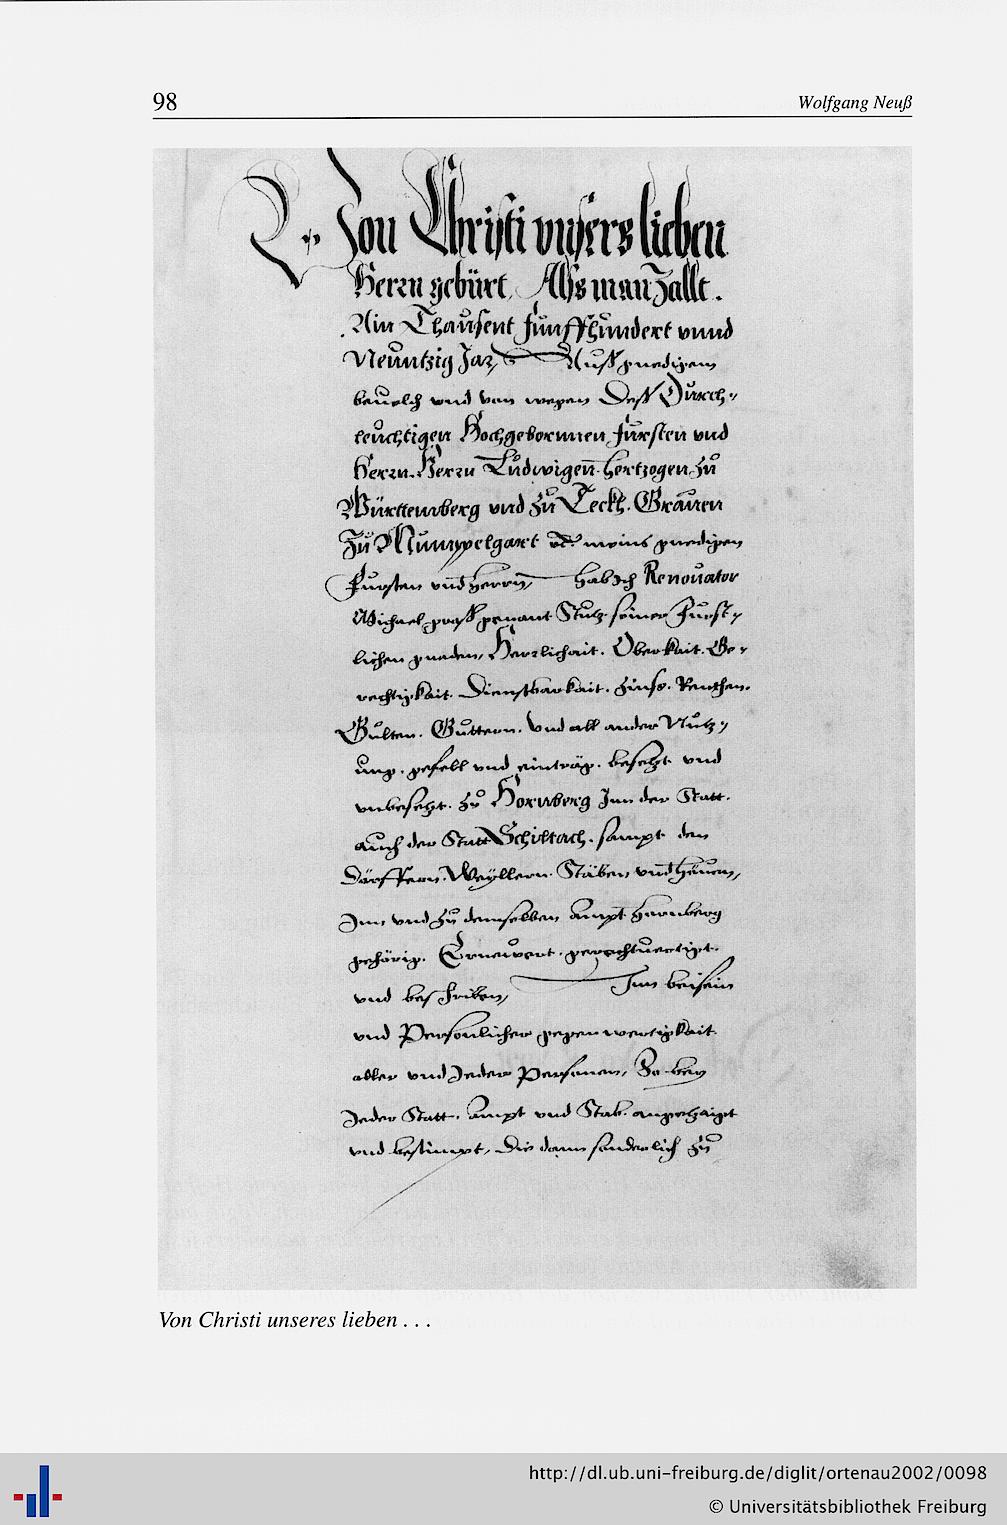 98
Wolfgang Neuß
Von Christi vnsers lieben
Herrn gebürt, Alls man Zallt.
Ain Thausent fünffhundert vnnd
Neuntzig Jar, Auß gnedigem
beuelch vnd von wegen Deß Durch-
leuchtigen Hochgebornnen Fürsten vnd
Herrn. Herrn Ludwigen hertzogen zu
Württemberg vnd zu Teckh. Grauen
zu Mumppelgart etc. meins gnedigen
Fursten vnd Herrn, hab Ich Renouator
Michael genant Stutz seiner Fürst-
lichen gnaden, Herrlichait. Oberkait. Ge-
rechtigkait. Dienstbarkait. Zinss. Renthen.
Gulten. Guettern. Vnd all ander Nutz-
ung. gefell vnd einträg. besetzt vnd
vnbesetzt. zu Hornberg Inn der Statt.
auch der Statt Schiltach. sampt den
Dörffern. Weyllern. Stäben vnd Höuen,
Inn vnd zu demselben Ampt Hornberg
gehörig. Erneuwert. gerechtuertigt.
vnd beschriben, Inn beisein
vnd Personlicher gegenwertigkait
aller vnd Jeder Personen, So bey
Jeder Statt. Ampt vnd Stab. angezaigt
vnd bestimpt, Die dann sonderlich zu
Von Christi unseres lieben . . .
http://dl.ub.uni-freiburg.de/diglit/ortenau2002/0098
© Universitätsbibliothek Freiburg